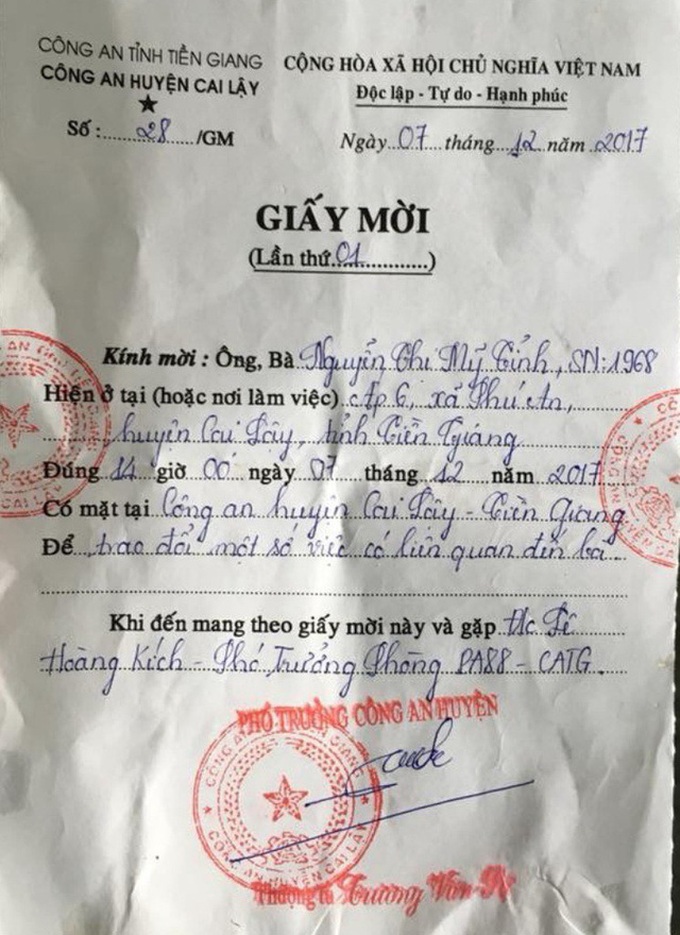 CÔNG AN TỈNH TIỀN GIANG
CÔNG AN HUYỆN CAI LẬY
Số :........28....../GM
CỘNG HÒA XÃ HỘI CHỦ NGHĨA VIỆT NAM
Độc lập - Tự do - Hạnh phúc
Ngày..07....tháng....12..năm..2017
GIẤY MỜI
(Lần thứ.01............)
Kính mời : Ông, Bà Nguyễn Thị Mỹ Tỉnh, SN:1968
Hiện ở tại (hoặc nơi làm việc)..ấp 6, xã Phú An,
huyện Cai Lậy, tỉnh Tiền Giang
Đúng 14 giờ 00 ngày 07 tháng 12 năm 2017
Có mặt tại Công an huyện Cai Lậy - Tiền Giang
Để...trao đổi một số việc có liên quan đến bà
Khi đến mang theo giấy mời này và gặp Đ/c Lê
Hoàng Kích - Phó Trưởng Phòng PA88 - CATG
PHÓ TRƯỞNG CÔNG AN HUYỆN
CÔNG AN HUYỆN CAI LẬY
Thượng tá Trương Văn